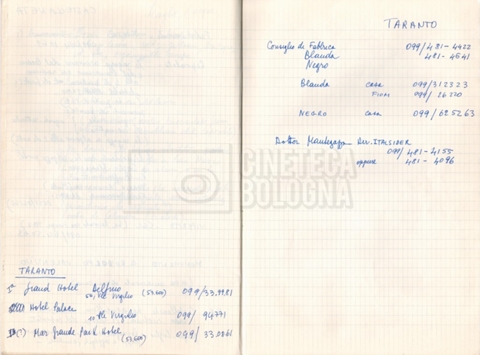 TARANTO
Grand Hotel Delfino
Viale Virgilio (53.600) 099/33.9981
Hotel Palace
Virgilio 099/ 94771
(?) Mar Grande Park Hotel
(53.600) 099/ 33.0861
TARANTO
Consiglio di Fabbrica 099/481-4422
Blanda 481-4541
Negro
Blanda casa 099/312323
099/ 26320
NEGRO casa 099/625263
Dottor ITALSIDER
099/ 481-4155
oppure 481-4096
CINETECA
BOLOGNA